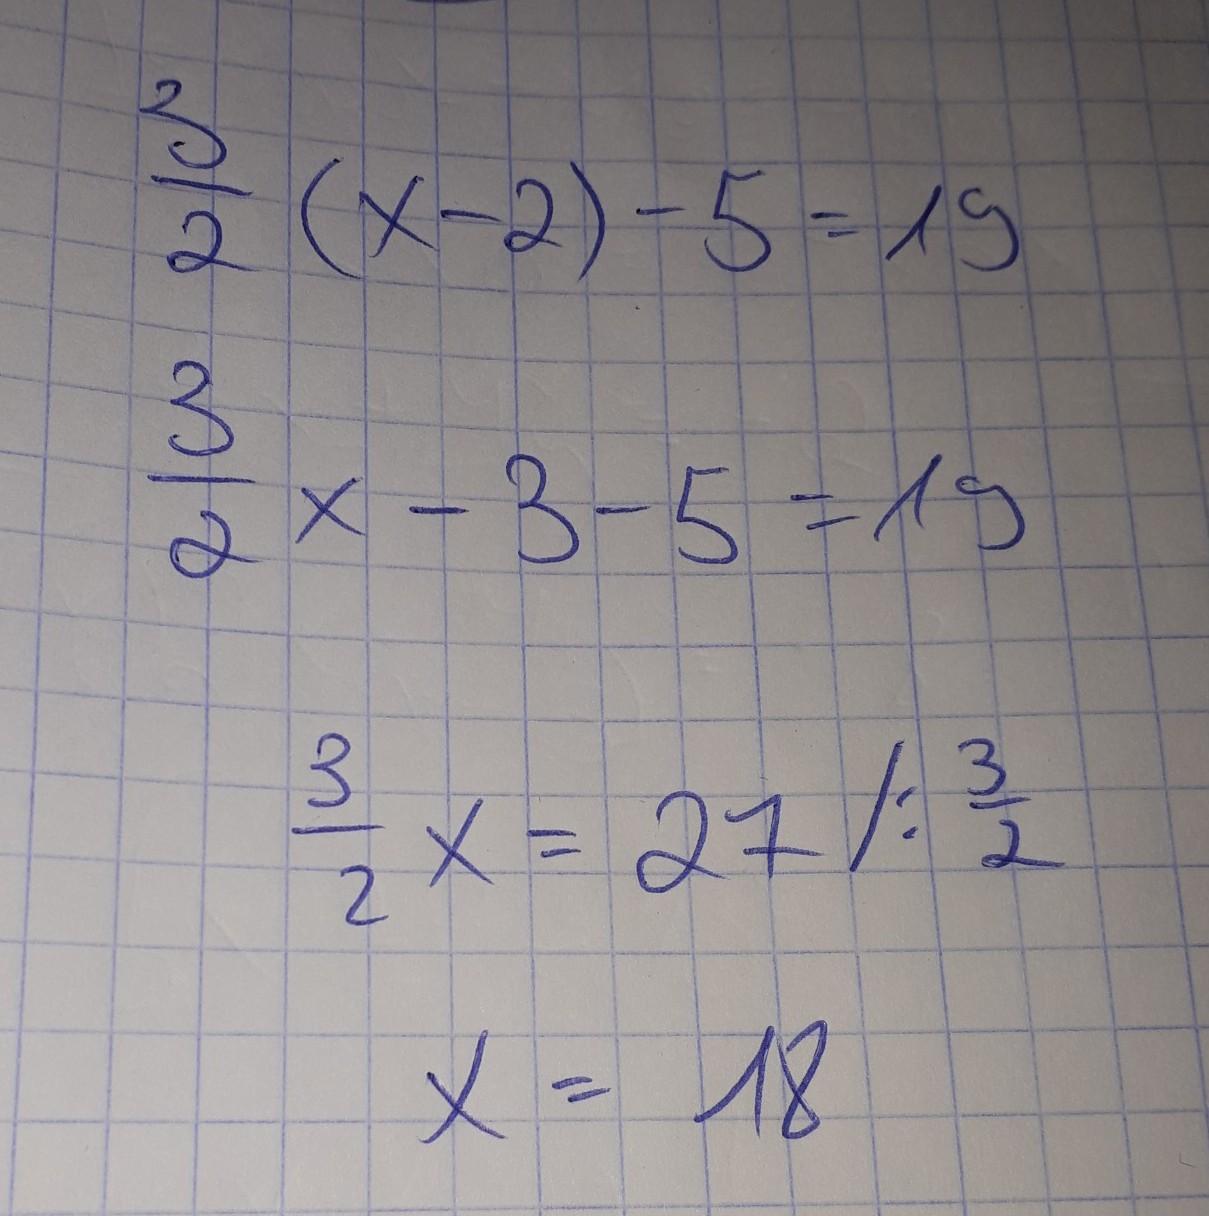 3/2 (x-2) - 5 = 19
3/2 x - 3 - 5 = 19
3/2 x = 27 /: 3/2
x = 18